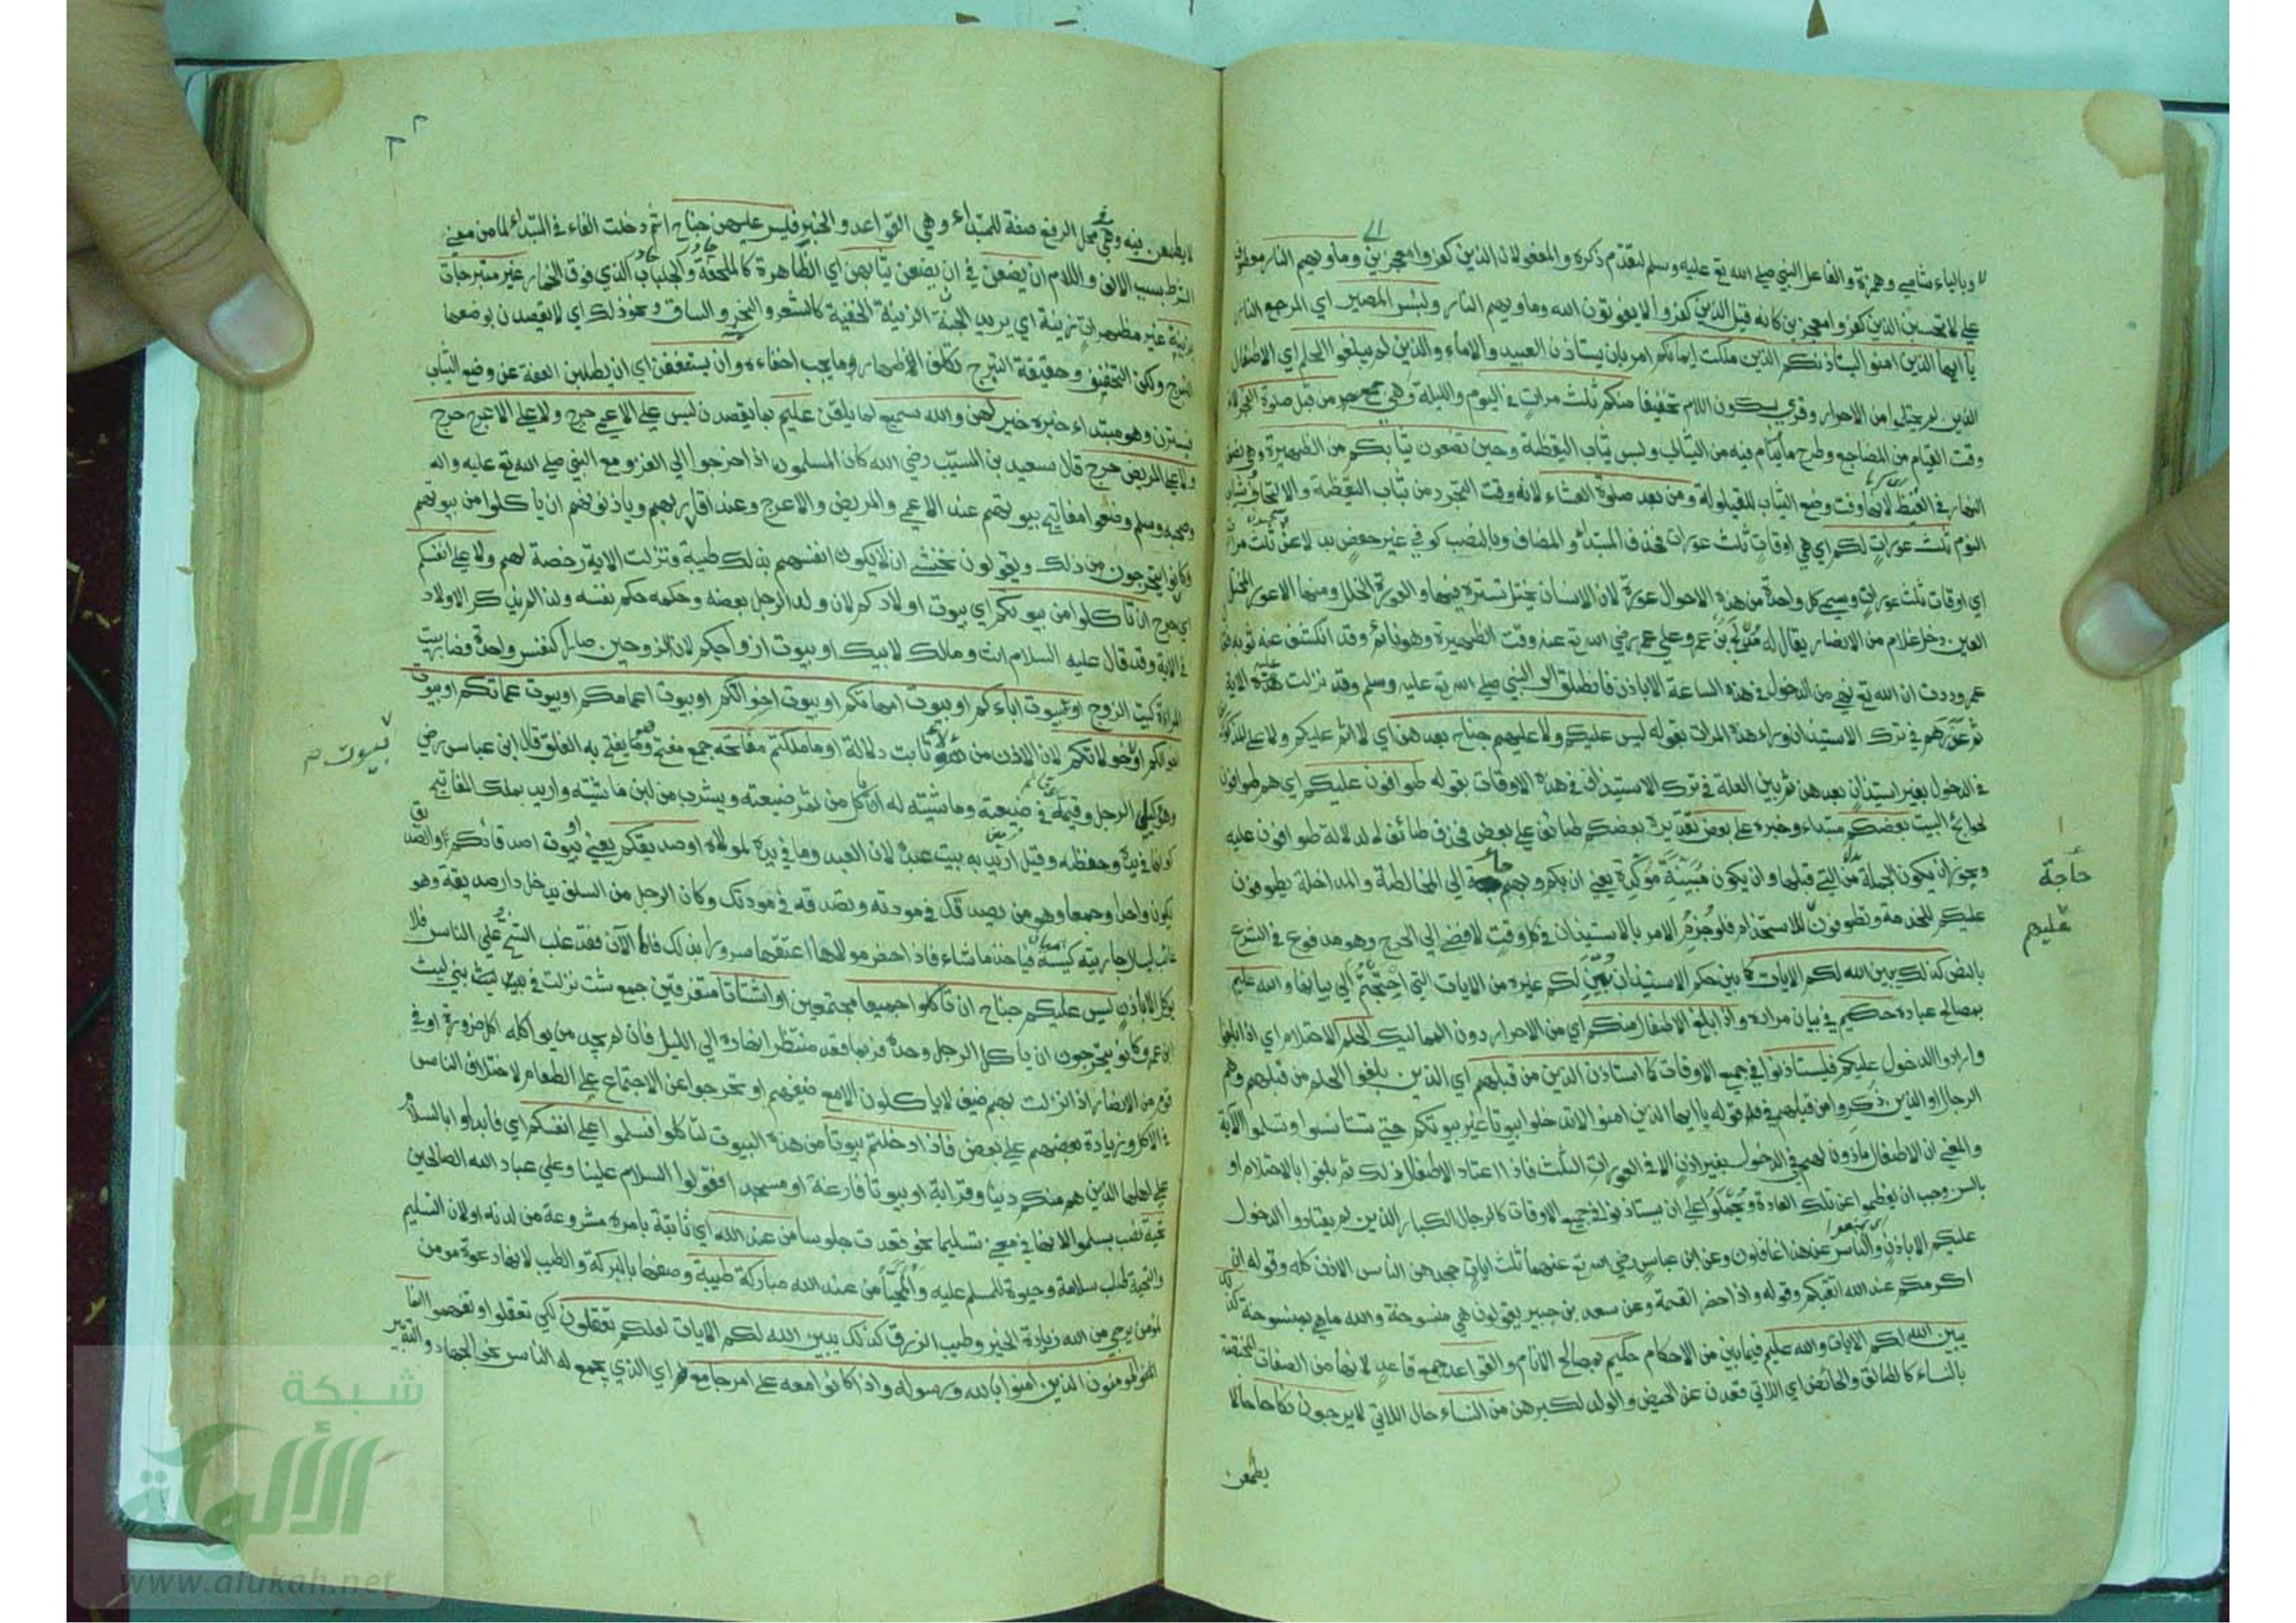 وبالياء شامي وحمزة والفاعل النبي صلى الله تع عليه وسلم لتقدم ذكره والمفعولان الذين كفروا معجزين وماويهم النار معطوف
على لا تحسبن الذين كفروا معجزين كانه قيل الذين كفروا لا يفوتون الله وماويهم النار ولبئس المصير اي المرجع النار
يا ايها الذين امنوا ليستاذنكم الذين ملكت ايمانكم امر بان يستاذن العبيد والاماء والذين لم يبلغوا الحلم اي الاطفال
الذين لم يحتلموا من الاحرار وقرئ بسكون اللام تخفيفا منكم ثلث مرات في اليوم والليلة وهي من قبل صلوة الفجر لانه
وقت القيام من المضاجع وطرح ما ينام فيه من الثياب ولبس ثياب اليقظة وحين تضعون ثيابكم من الظهيرة وهي نصف
النهار في القيظ لانها وقت وضع الثياب للقيلولة ومن بعد صلوة العشاء لانه وقت التجرد من ثياب اليقظة والالتحاف بثياب
النوم ثلث عورات لكم اي هي اوقات ثلث عورات فحذف المبتدأ والمضاف وبالنصب كوفي غير حفص بدلا عن ثلث مرات
اي اوقات ثلث عورات وسمي كل واحدة من هذه الاحوال عورة لان الانسان يختل تستره فيها والعورة الخلل ومنها الاعور المختل
العين دخل غلام من الانصار يقال له مدلج بن عمرو على عمر رضي الله تع عنه وقت الظهيرة وهو نائم وقد انكشف عنه ثوبه فقال
عمر وددت ان الله تع نهى من الدخول في هذه الساعة الا باذن فانطلق الى النبي صلى الله تع عليه وسلم وقد نزلت عليه هذه الاية
ثم عذرهم في ترك الاستيذان وراء هذه المرات بقوله ليس عليكم ولا عليهم جناح بعدهن اي لا اثم عليكم ولا على المذكورين
في الدخول بغير استيذان بعدهن ثم بين العلة في ترك الاستيذان في هذه الاوقات بقوله طوافون عليكم اي هم طوافون
لحوائج البيت بعضكم مبتداء وخبره على بعض تقديره بعضكم طائف على بعض فحذف طائف لدلالة طوافون عليه
ويجوز ان يكون الجملة بدلا من التي قبلها وان يكون مبينة مؤكدة يعني ان بكم وبهم حاجة الى المخالطة والمداخلة يطوفون
حاجة
عليكم للخدمة وتطوفون للاستخدام فلو جزم الامر بالاستيذان في كل وقت لافضى الى الحرج وهو مدفوع في الشرع
عليهم
بالنص كذلك يبين الله لكم الايات كما بين حكم الاستيذان يبين لكم غيره من الايات التي احتجتم الى بيانها والله عليم
بمصالح عباده حكيم في بيان مراده واذا بلغ الاطفال منكم اي من الاحرار دون المماليك الحلم الاحتلام اي اذا بلغوا
وارادوا الدخول عليكم فليستاذنوا في جميع الاوقات كما استاذن الذين من قبلهم اي الذين بلغوا الحلم من قبلهم وهم
الرجال او الذين ذكروا من قبلهم في قوله يا ايها الذين امنوا لا تدخلوا بيوتا غير بيوتكم حتى تستانسوا وتسلموا الآية
والمعنى ان الاطفال ماذون لهم في الدخول بغير اذن الا في العورات الثلث فاذا اعتاد الاطفال ذلك ثم بلغوا بالاحتلام او
بالسن وجب ان يفطموا عن تلك العادة ويحملوا على ان يستاذنوا في جميع الاوقات كالرجال الكبار الذين لم يعتادوا الدخول
عليكم الا باذن والناس عن هذا غافلون وعن ابن عباس رضي الله تع عنهما ثلث ايات جحدهن الناس الاذن كله وقوله ان
اكرمكم عند الله اتقيكم وقوله واذا حضر القسمة وعن سعيد بن جبير يقولون هي منسوخة والله ما هي بمنسوخة كذلك
يبين الله لكم الايات والله عليم فيما بين من الاحكام حكيم بمصالح الانام والقواعد جمع قاعد لانها من الصفات المختصة
بالنساء كالطالق والحائض اي اللاتي قعدن عن الحيض والولد لكبرهن من النساء حال اللاتي لا يرجون نكاحا حال لا
يطمعن
لا يطمعن فيه وهي في محل الرفع صفة للمبتداء وهي القواعد والخبر فليس عليهن جناح اثم دخلت الفاء في المبتداء لما من معنى
الشرط بسبب الالف واللام ان يضعن في ان يضعن ثيابهن اي الظاهرة كالملحفة والجلباب الذي فوق الخمار غير متبرجات
بزينة غير مظهرات زينة اي يريد الزينة الخفية كالشعر والنحر والساق ونحو ذلك اي لا يقصدن بوضعها
التبرج ولكن التخفيف وحقيقة التبرج تكلف الاظهار وما يجب اخفاءه وان يستعففن اي ان يطلبن العفة عن وضع الثياب
يسترن وهو مبتداء خبره خير لهن والله سميع لما يلقن عليم بما يقصدن ليس على الاعمى حرج ولا على الاعرج حرج
ولا على المريض حرج قال سعيد بن المسيب رضي الله كان المسلمون اذا خرجوا الى الغزو مع النبي صلى الله تع عليه واله
وصحبه وسلم وضعوا مفاتيح بيوتهم عند الاعمى والمريض والاعرج وعند اقاربهم وياذنونهم ان ياكلوا من بيوتهم
وكانوا يتحرجون من ذلك ويقولون نخشى ان لا يكون انفسهم بذلك طيبة ونزلت الاية رخصة لهم ولا على انفسكم
اي حرج ان تاكلوا من بيوتكم اي بيوت اولادكم لان ولد الرجل بعضه وحكمه حكم نفسه ولذا لم يذكر الاولاد
في الاية وقد قال عليه السلام انت ومالك لابيك او بيوت ازواجكم لان الزوجين صارا كنفس واحدة فصار بيت
المراة كبيت الزوج او بيوت اباءكم او بيوت امهاتكم او بيوت اخوانكم او بيوت اعمامكم او بيوت عماتكم او بيوت
اخوالكم او خالاتكم لان الاذن من هؤلاء ثابت دلالة او ما ملكتم مفاتحه جمع مفتح وهو ما يفتح به الغلق قال ابن عباس رضي
بيوت
وهو وكيل الرجل وقيمه في ضيعته وماشيته له ان ياكل من ثمر ضيعته ويشرب من لبن ماشيته واريد بملك المفاتيح
كونها في يده وحفظه وقيل اريد به بيت عبده لان العبد وما في يده لمولاه او صديقكم يعني او بيوت اصدقائكم والصديق
يكون واحدا وجمعا وهو من يصدقك في مودته وتصدقه في مودتك وكان الرجل من السلف يدخل دار صديقه وهو
غائب فيسال جاريته كيسه فياخذ ما شاء فاذا حضر مولاها اعتقها سرورا بذلك فاما الآن فقد غلب الشح على الناس فلا
يؤكل الا باذن ليس عليكم جناح ان تاكلوا جميعا مجتمعين او اشتاتا متفرقين جمع شت نزلت في بني ليث
ابن عمرو كانوا يتحرجون ان ياكل الرجل وحده فربما قعد منتظرا نهاره الى الليل فان لم يجد من يواكله اكل ضرورة او في
قوم من الانصار اذا نزلت بهم ضيف لا ياكلون الا مع ضيفهم او تحرجوا عن الاجتماع على الطعام لاختلاف الناس
في الاكل وزيادة بعضهم على بعض فاذا دخلتم بيوتا من هذه البيوت لتاكلوا فسلموا على انفسكم اي فابداوا بالسلام
على اهلها الذين هم منكم دينا وقرابة او بيوتا فارغة او مسجدا فقولوا السلام علينا وعلى عباد الله الصالحين
تحية نصب بسلموا لانها في معنى تسليما نحو قعدت جلوسا من عند الله اي ثابتة بامره مشروعة من لدنه او لان التسليم
والتحية طلب سلامة وحيوة للمسلم عليه من عند الله مباركة طيبة وصفها بالبركة والطيب لانها دعوة مومن
لمؤمن يرجى من الله زيادة الخير وطيب الرزق كذلك يبين الله لكم الايات لعلكم تعقلون لكي تعقلوا وتفهموا انما
المؤمنون الذين امنوا بالله ورسوله واذا كانوا معه على امر جامع اي الذي يجمع له الناس نحو الجهاد والتدبير
شبكة
الألوكة
www.alukah.net